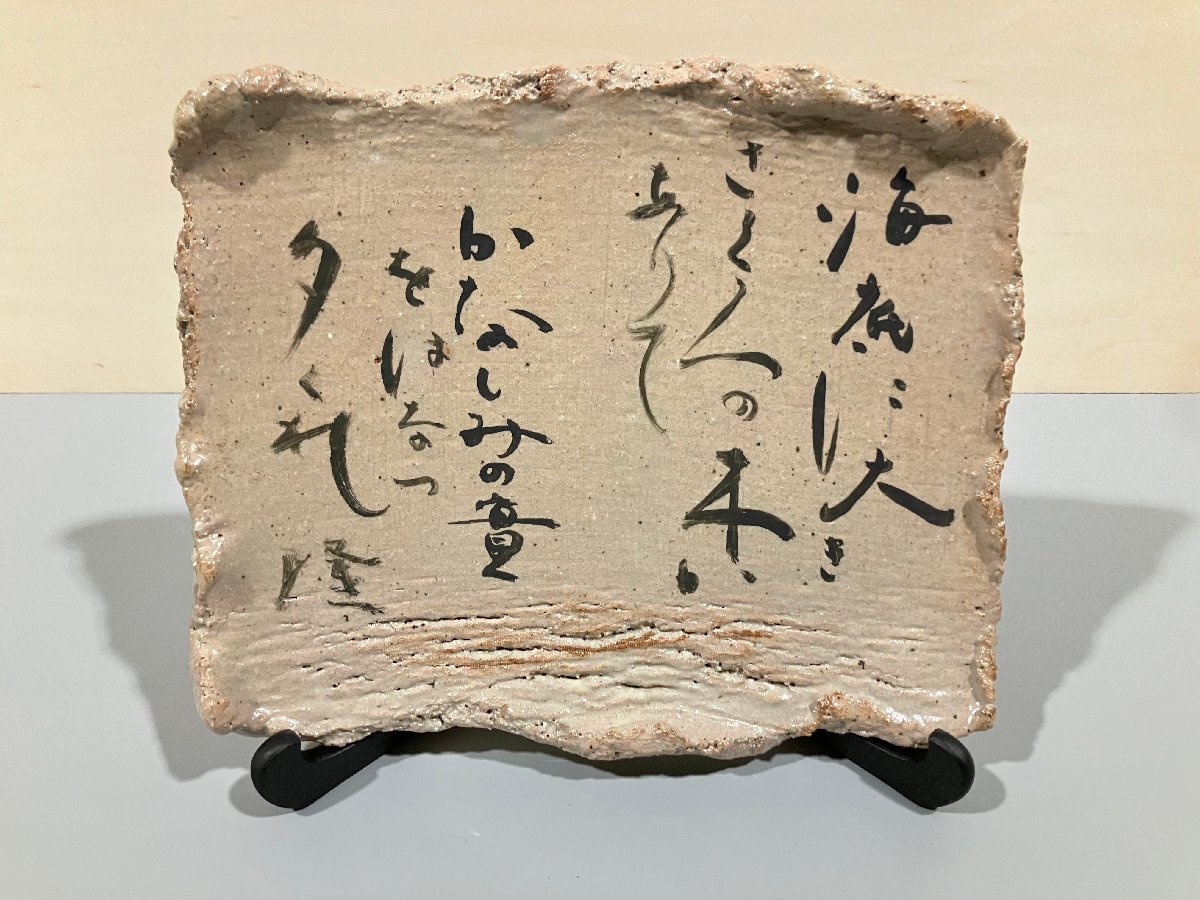 海底に大き
さくらの木か
ありて
かなしみの
をはなつ
夕くれ
隆